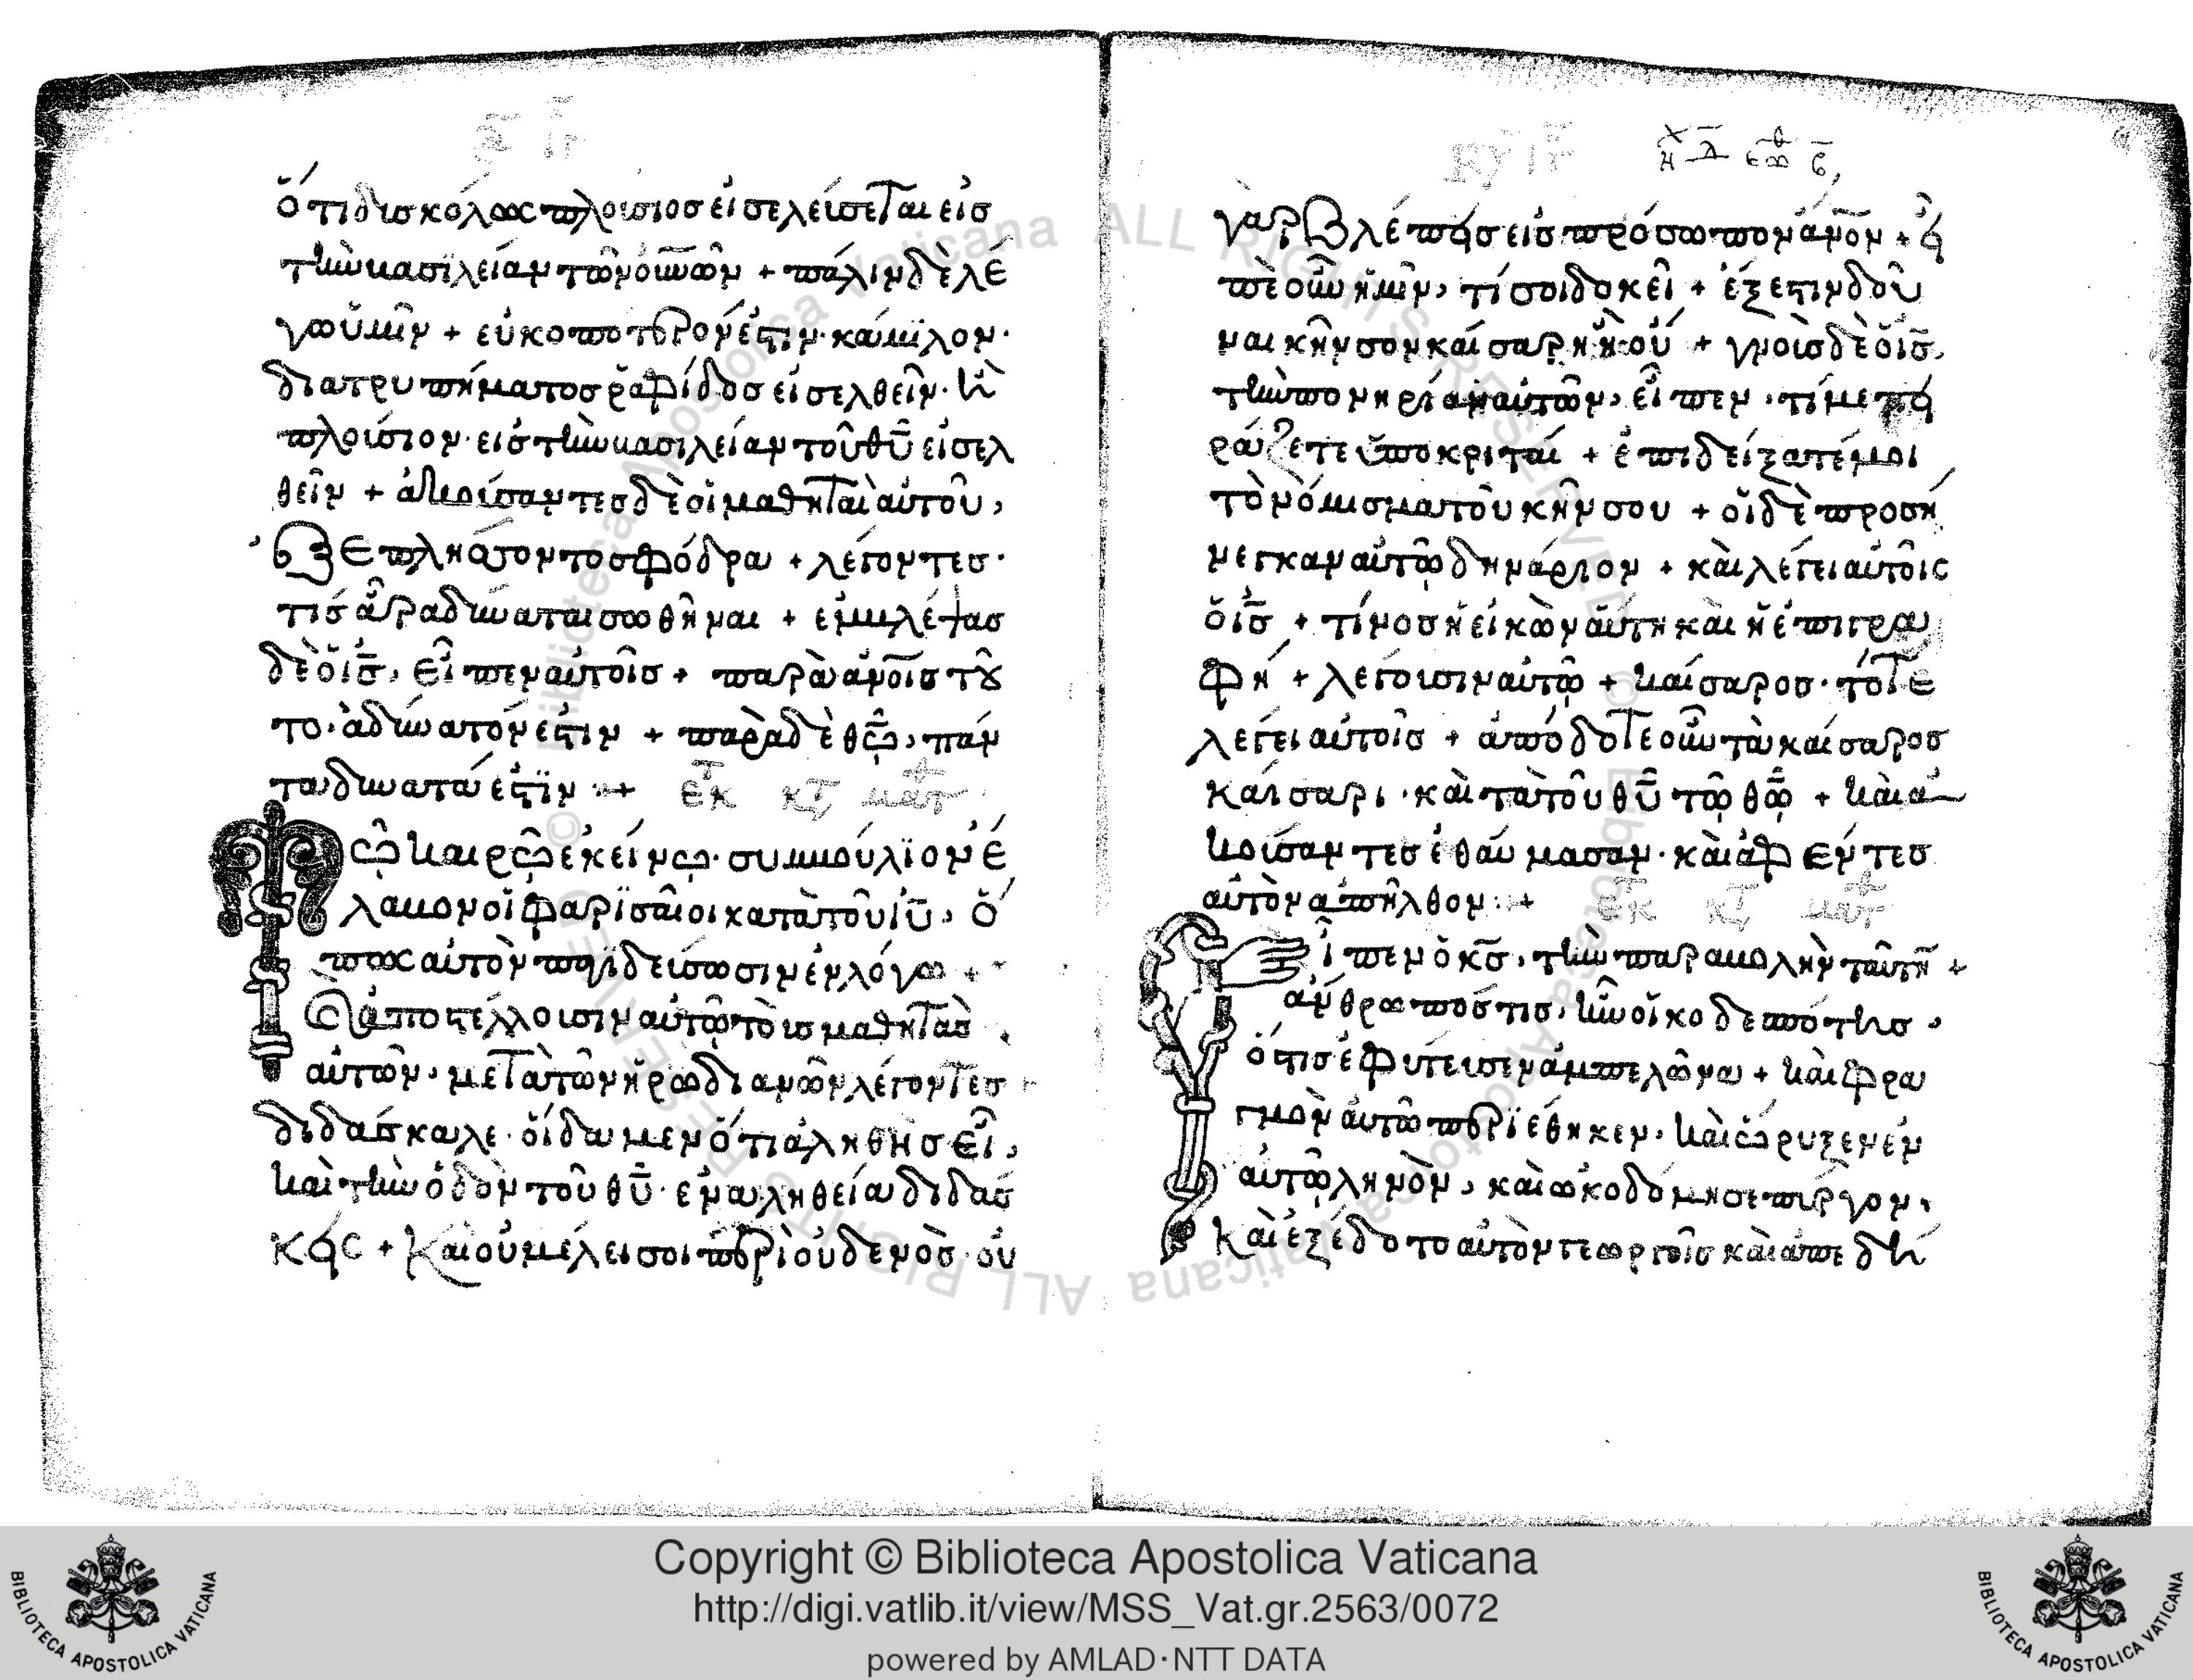 ὅτι δισκόλως πλοισιος εἰσελεύσεται εἰς
τὴν βασϊλείαν τῶν οὐνῶν + πάλιν δὲ λέ
γω ὑμῖν + εὐκοπότερον ἐστιν · κάμϊλον ·
διατρυπήματος ῥαφίδος εἰσελθεῖν · ἢ
πλοίσιον · εἰς τὴν βασιλείαν τοῦ θῦ εἰσελ
θεῖν + ἀκοίσαντες δὲ οἱ μαθηταὶ αὐτοῦ,
ἐξεπλησοντο σφόδρα + λέγοντες ·
τίς ἄρα δύναται σωθῆναι + ἐμβλέψας
δὲ ὁ ις, εἶπεν αὐτοῖς + παρὰ ἀνοῖς τοῦ
το · ἀδύνατόν ἐστιν + παρὰ δὲ θῶ, πάν
τα δυνατά ἐστϊν +
Τῶ καιρῶ ἐκείνω · συμβούλϊον ἔ
λαβον οἱ φαρϊσαῖοι κατὰ τοῦ ιῦ, ὅ
πως αὐτὸν παγϊδεύσωσιν ἐν λόγω +
Καὶ ἀποστέλλουσιν αὐτῶ τοὺς μαθητὰς
αὐτῶν, μετὰ τῶν ἡρωδιανῶν λέγοντες
διδάσκαλε · οἴδαμεν ὅτι ἀληθὴς εἶ,
καὶ τὴν ὁδὸν τοῦ θῦ · ἐν ἀληθεία διδάσ
κεις + καὶ οὐ μέλει σοι περὶ οὐδενὸς · οὐ
γὰρ βλέπεις εἰς πρόσωπον ἀνον + εἰ
πὲ οὖν ἡμῖν, τί σοι δοκεῖ + ἔξεστιν δοῦ
ναι κῆνσον καίσαρη ἢ οὔ + γνοὺς δὲ ὁ ις,
τὴν πονηρίαν αὐτῶν, εἶπεν · τί με πει
ράζετε ὑποκριταί + ἐπιδείξατέ μοι
τὸ νόμισμα τοῦ κήνσου + οἱ δὲ προσή
νεγκαν αὐτῶ δηνάριον + καὶ λέγει αὐτοῖς
ὁ ις + τίνος ἡ εἰκὼν αὕτη καὶ ἡ ἐπιγρα
φή + λέγουσιν αὐτῶ + καίσαρος · τότε
λέγει αὐτοῖς + ἀπόδοτε οὖν τὰ καίσαρος
καίσαρι · καὶ τὰ τοῦ θῦ τῶ θῶ + καὶ ἀ
κοίσαντες ἐθαύμασαν · καὶ ἀφέντες
αὐτὸν ἀπῆλθον +
Εἶπεν ὁ κς, τὴν παραβολὴν ταύτη +
ἄνθρωπός τις, ἦν οἰκοδεσπότης,
ὅστις ἐφύτευσεν ἀμπελῶνα + καὶ φρα
γμὸν αὐτῶ περϊέθηκεν, καὶ ὤρυξεν ἐν
αὐτῶ ληνὸν, καὶ ὠκοδόμησε πύργον,
καὶ ἐξέδοτο αὐτὸν γεωργοῖς καὶ ἀπεδή
Copyright © Biblioteca Apostolica Vaticana
http://digi.vatlib.it/view/MSS_Vat.gr.2563/0072
powered by AMLAD·NTT DATA
BIBLIOTECA APOSTOLICA VATICANA
BIBLIOTECA APOSTOLICA VATICANA